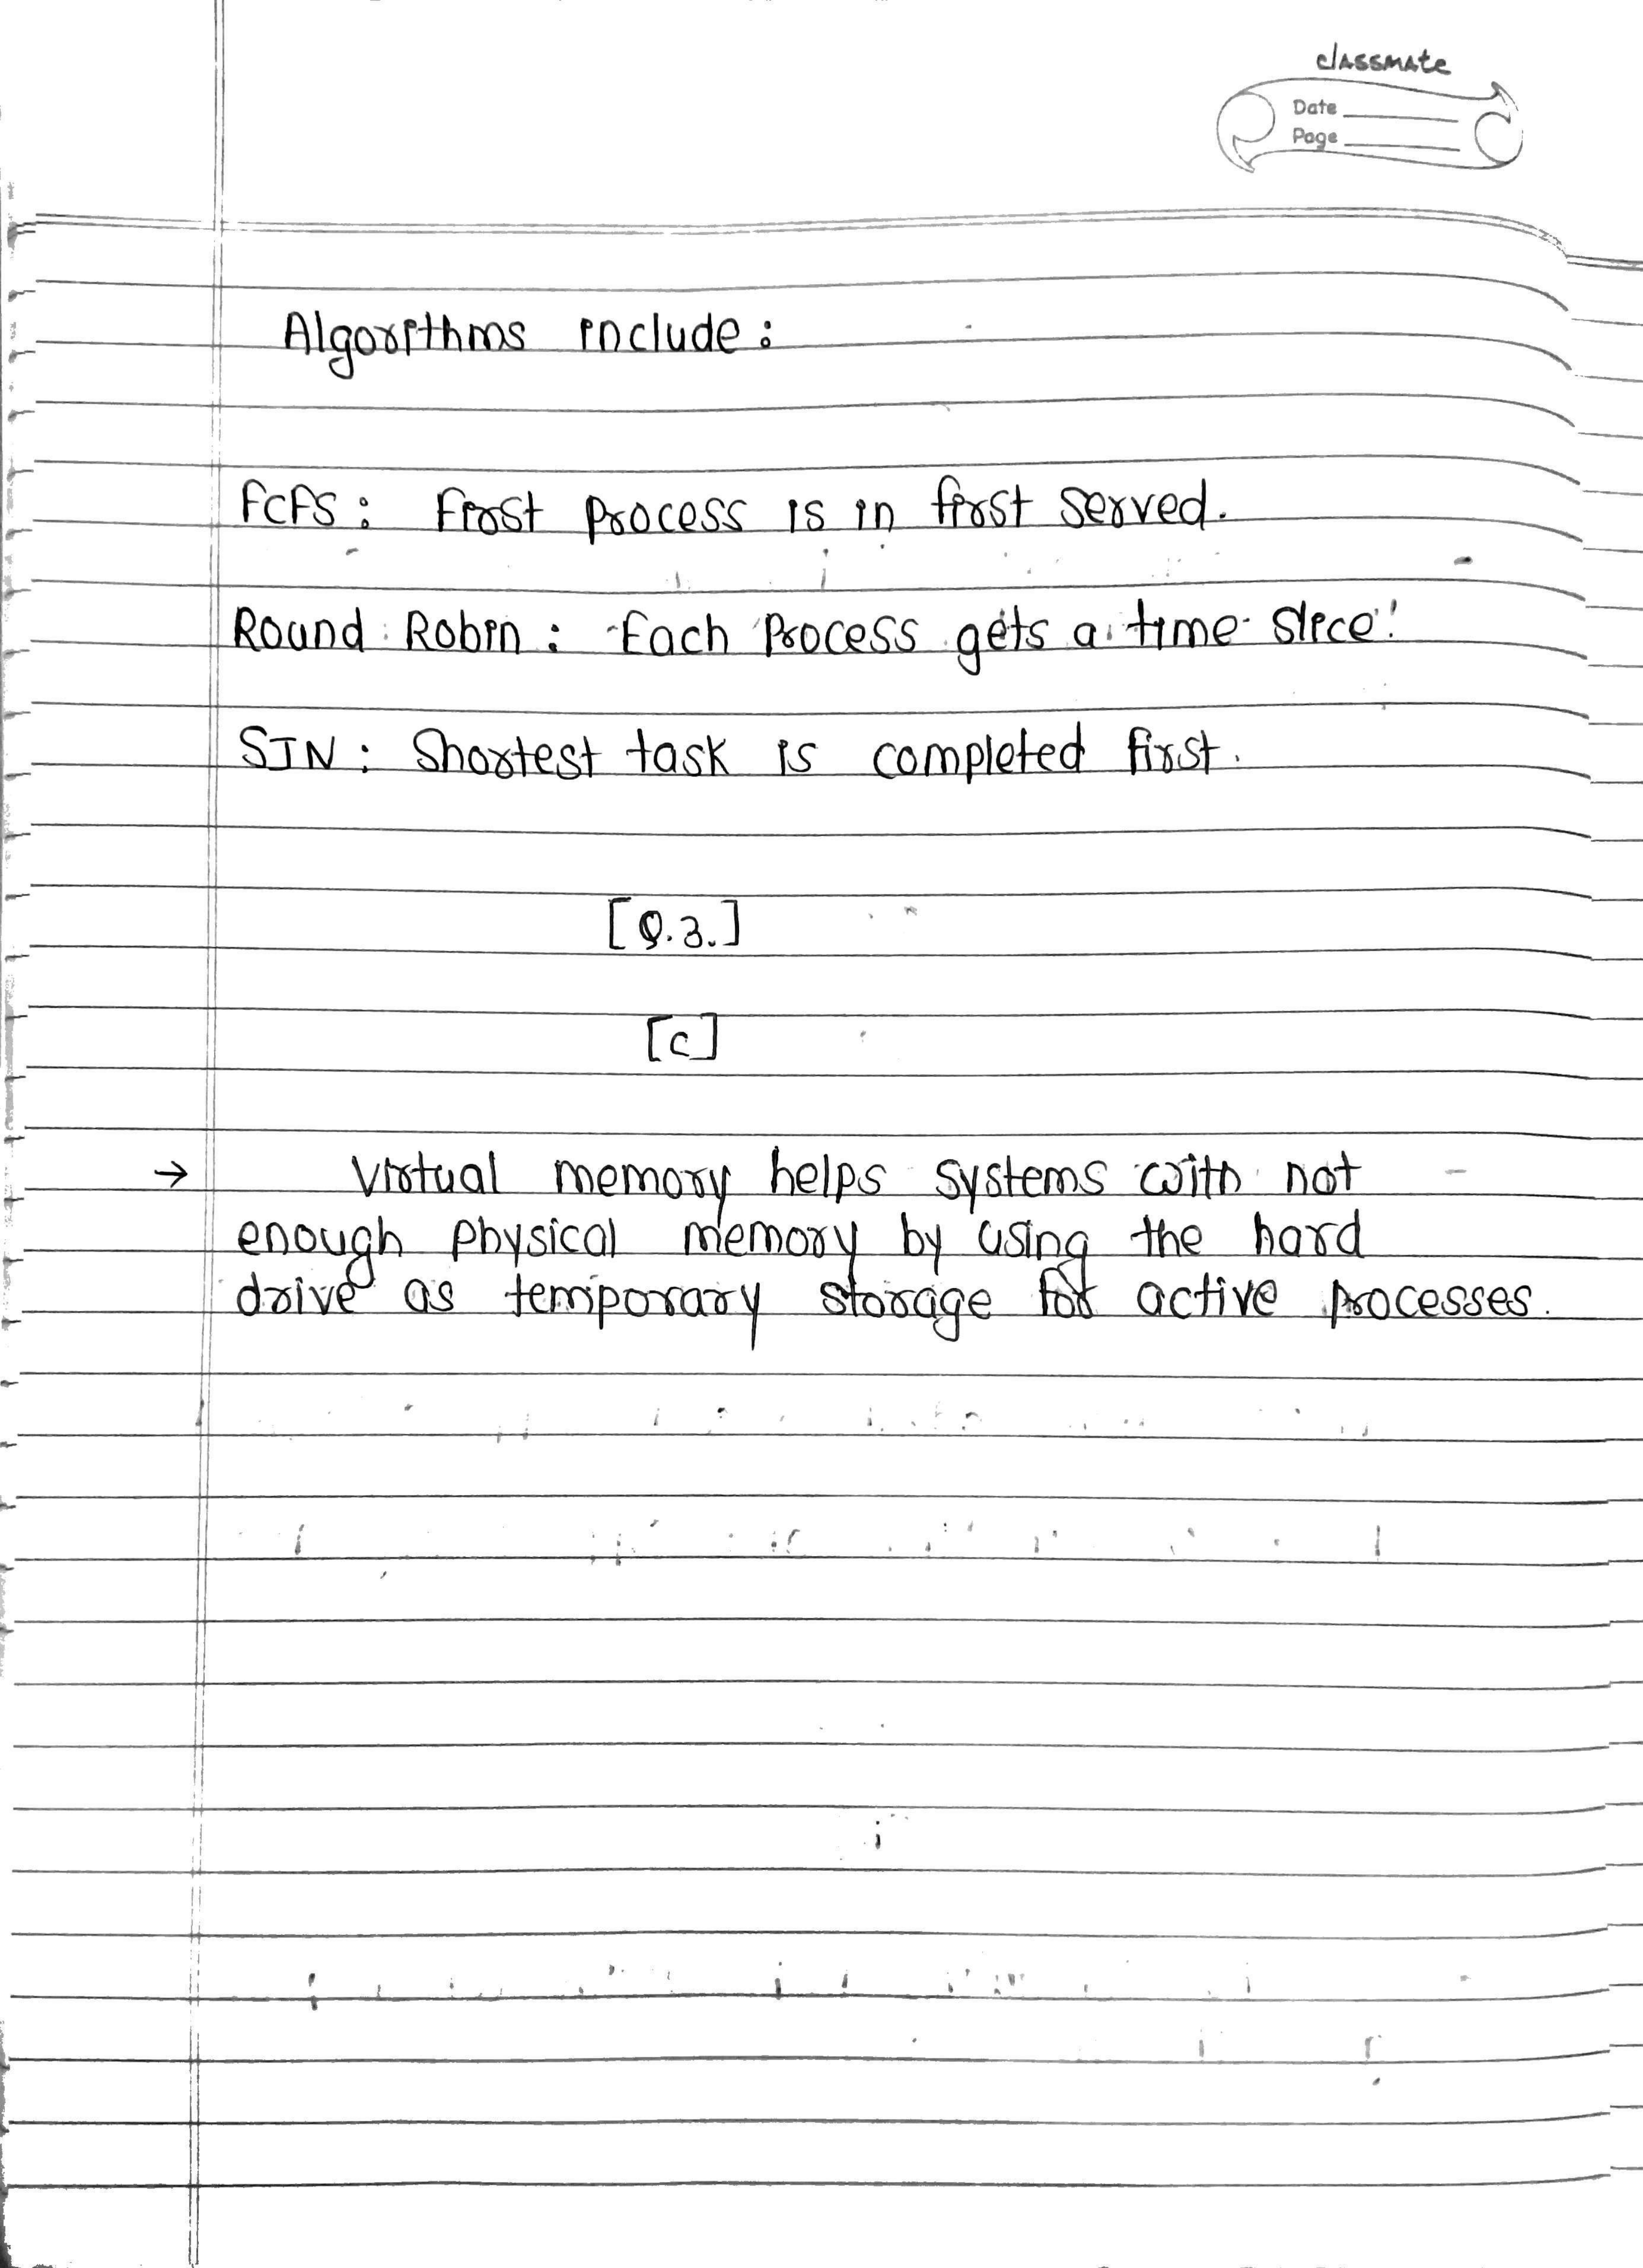 classmate
Date
Page
Algorithms include :
FCFS : First process is in first served.
Round Robin : Each process gets a time slice.
SJN : Shortest task is completed first.
[Q.3.]
[c]
→ Virtual memory helps systems with not
enough physical memory by using the hard
drive as temporary storage for active processes.